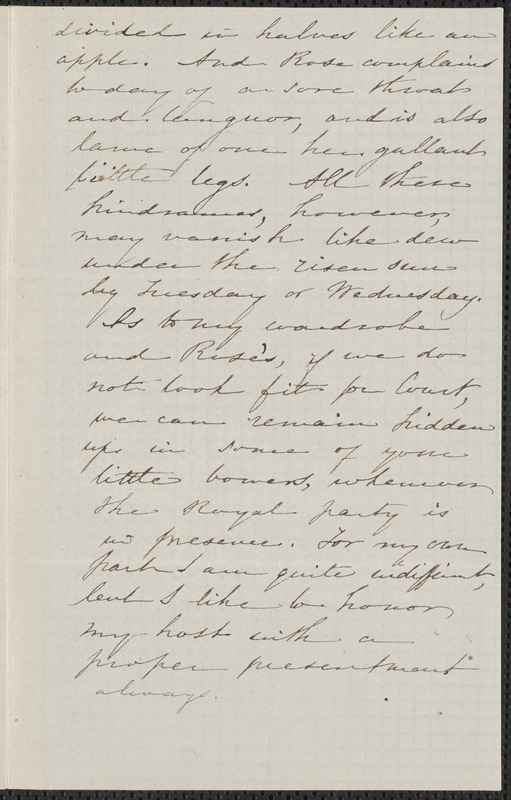 divided in halves like an
apple. And Rose complains
to day of a sore throat
and languor, and is also
lame of one her gallant
little legs. All these
hindrances, however,
may vanish like dew
under the risen sun
by Tuesday or Wednesday.
As to my wardrobe
and Rose's, if we do
not look fit for Court,
we can remain hidden
up in some of your
little bowers, whenever
the Royal party is
in presence. For my own
part I am quite indifferent,
but I like to honor
my host with a
proper "presentment"
always.